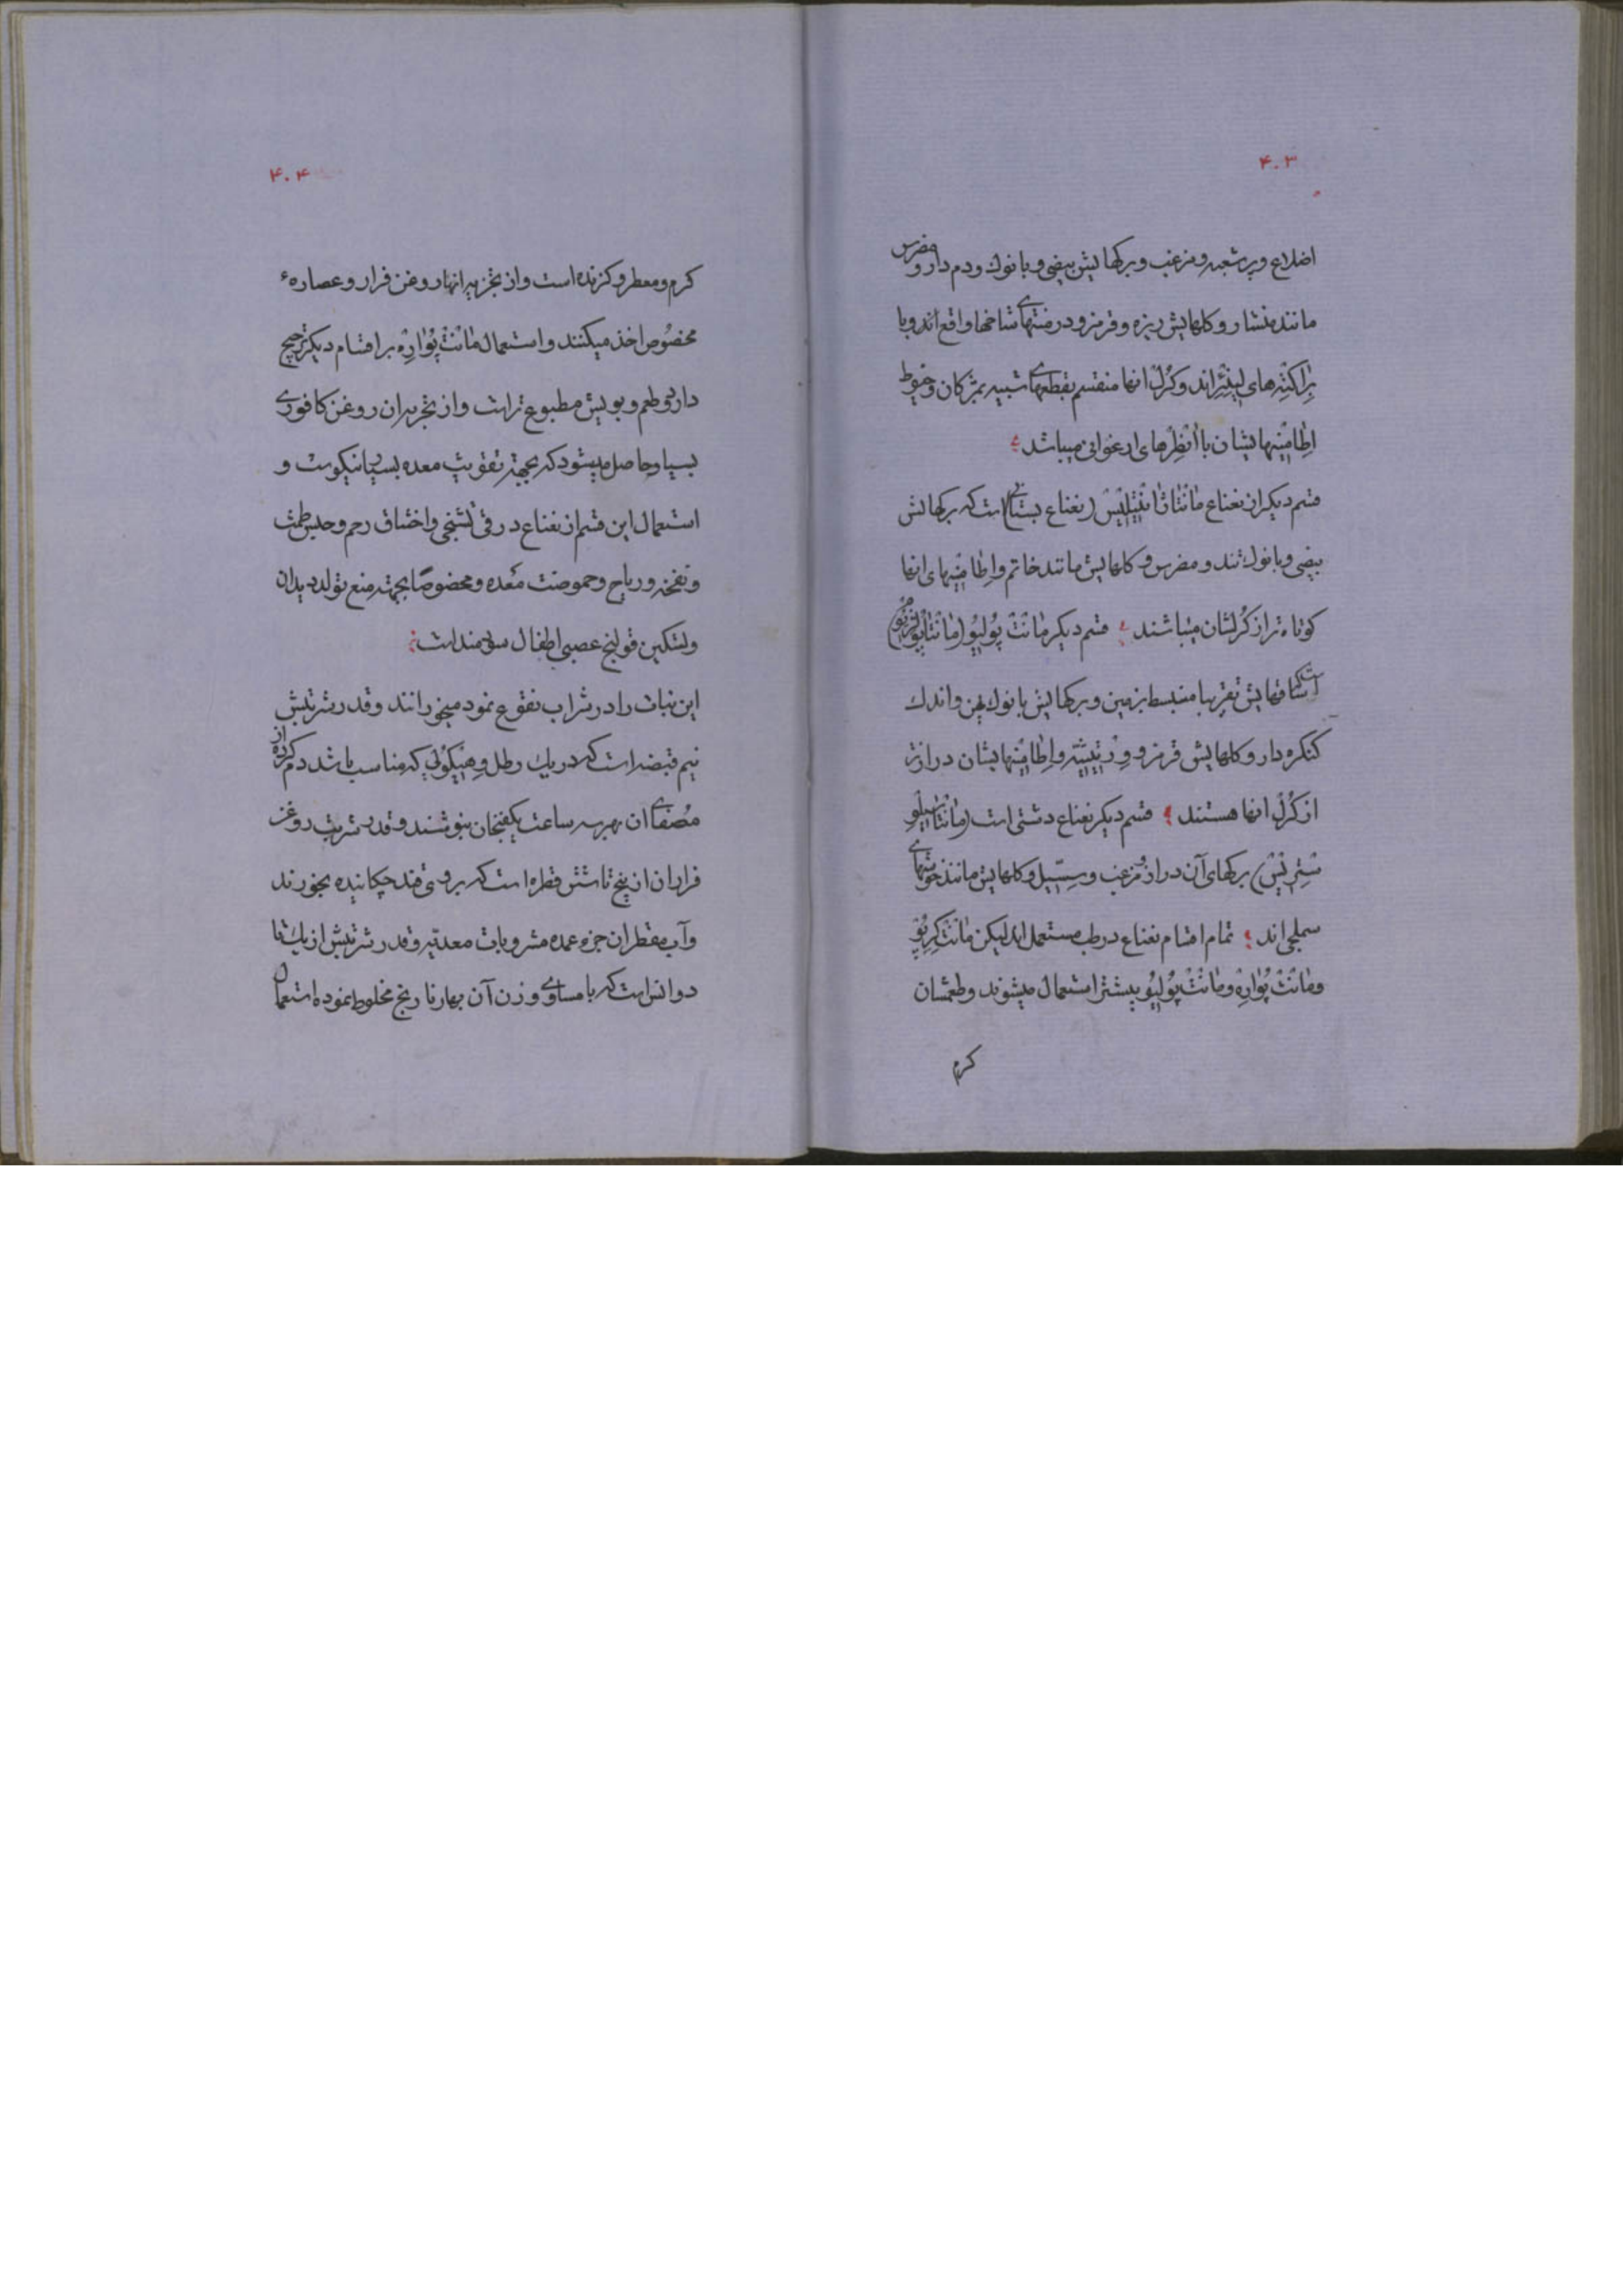 ۴۰۳
اضلاع و پر شعبه و مزغب و برکهایش بیضی و با نوک و دم دار و مضرس
مانند منشار و کلهایش ریزه و قرمز و در منتهای شاخها واقع اند و با
براکته‌های لینئر اند و کرل انها منقسم بقطعهای شبیه بمژکان و خیوط
اطامینهایشان با انطر های ارغوانی میباشد
قسم دیکر از نعناع مانتا ژانتیلیس (نعناع بستانی) است که برکهایش
بیضی و با نوک تند و مضرس و کلهایش مانند خاتم و اطامینهای انها
کوتاه تر از کرلشان میباشند قسم دیکر مانت پولیو (مانتا پولژیو)
است ساقهایش تقریبا منبسط بزمین و برکهایش با نوک پهن و اندک
کنکره دار و کلهایش قرمز و ورتیسیه و اطامینهایشان درازتر
از کرل انها هستند قسم دیکر نعناع دشتی است (مانتا سیلو
ستریس) برکهای آن دراز و مزغب و سسیل و کلهایش مانند خوشهای
سملجی اند تمام اقسام نعناع در طب مستعمل اند لیکن مانت کریپو
و مانت پواره و مانت پولیو بیشتر استعمال میشوند و طعمشان
کرم
۴۰۴
کرم و معطر و کزنده است و از تجزیه انها روغن فرار و عصارهٔ
مخصوص اخذ میکنند و استعمال مانت پواره بر اقسام دیکر ترجیح
دارد و طعم و بویش مطبوع تر است و از تجزیه ان روغن کافوری
بسیار حاصل میشود که بجهة تقویت معده بسیار نیکوست و
استعمال این قسم از نعناع در قی تشنجی و اختناق رحم و حبس طمث
و نفخه و ریاح و حموضت معده و مخصوصا بجهة منع تولد دیدان
و تسکین قولنج عصبی اطفال سودمند است
این نبات را در شراب نقوع نموده میخورانند و قدر شربتش
نیم قبضه است که در یک رطل وهیکولی که مناسب باشد دم کرده از
مصفای ان بهر سه ساعت یکفنجان بنوشند و قدر شربت روغن
فرار ان از پنج تا شش قطره است که بر روی قند چکانیده بخورند
و آب مقطر ان جزء عمده مشروبات معدیه و قدر شربتش از یک تا
دو انس است که با مساوی وزن آن بهار نارنج مخلوط نموده استعمال